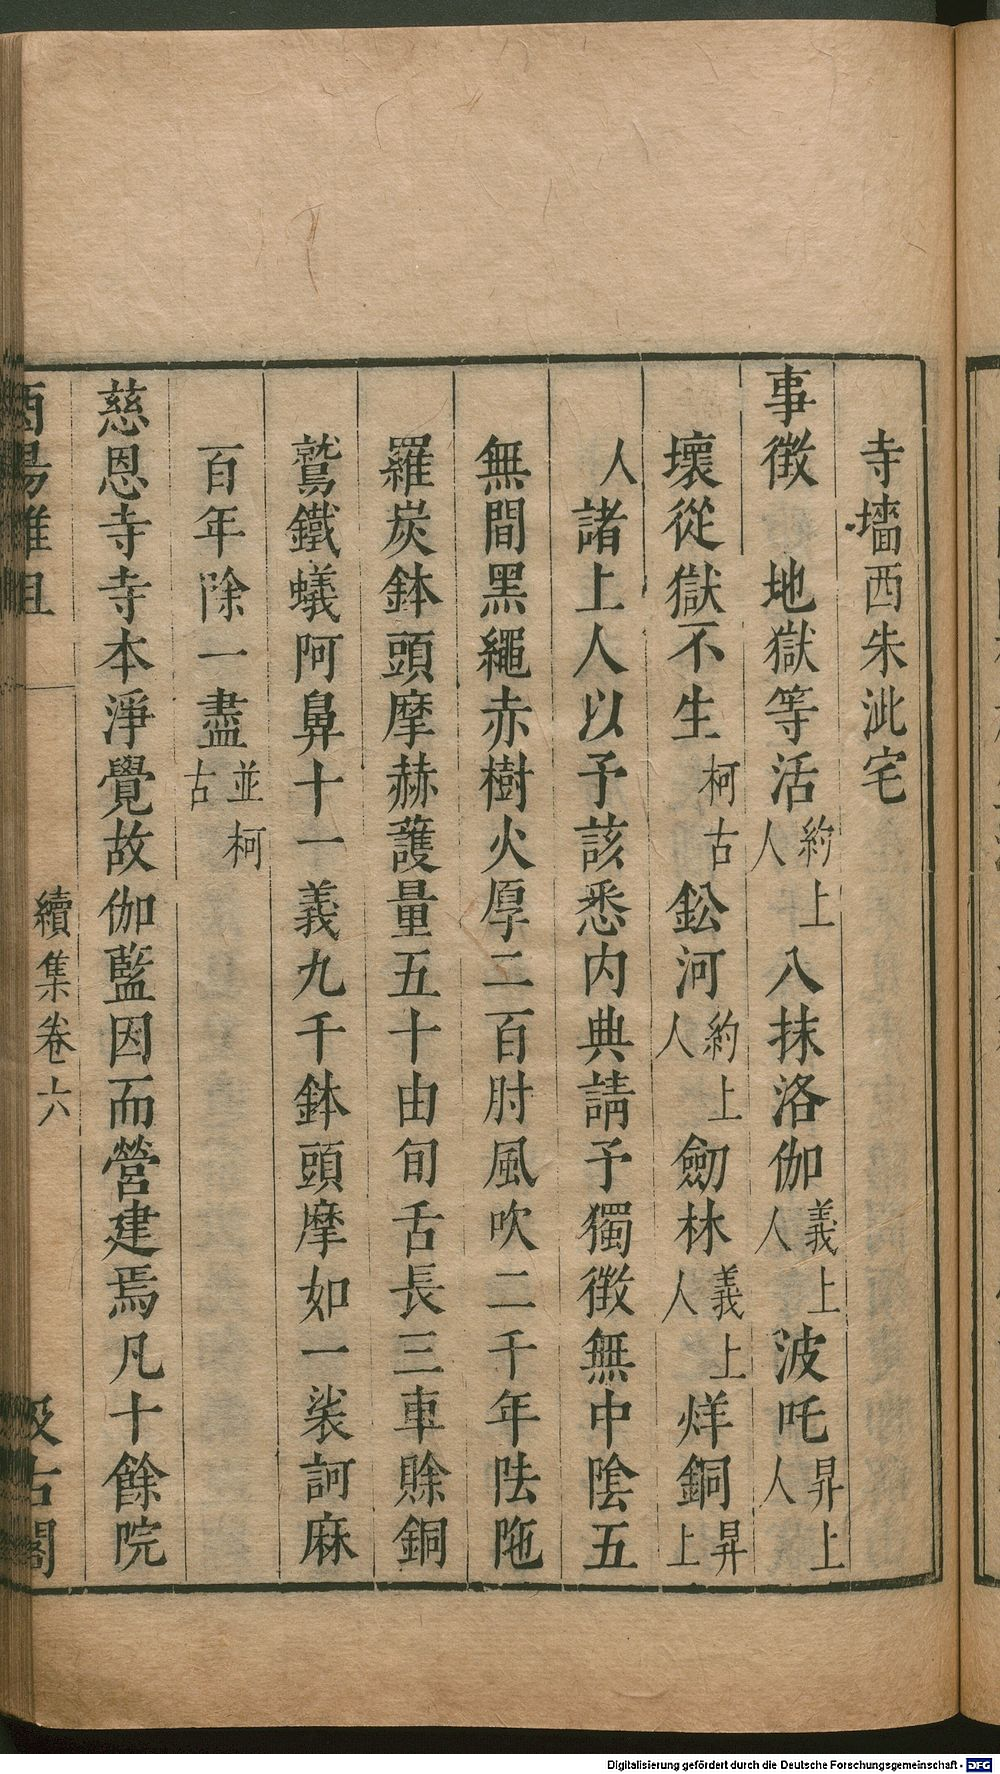 寺墻西朱泚宅
事徵　地獄等活約上人八抹洛伽義上人波吒昇上人
壞從獄不生柯古鈆河約上人劒林義上人烊銅昇上
人諸上人以予該悉內典請予獨徵無中陰五
無間黑繩赤樹火厚二百肘風吹二千年陹陁
羅炭鉢頭摩赫䕶量五十由旬舌長三車賖銅
鷲鐵蟻阿鼻十一義九千鉢頭摩如一裟訶麻
百年除一盡並柯古
慈恩寺寺本淨覺故伽藍因而營建焉凡十餘院
酉陽雜俎　續集卷六　汲古閣
Digitalisierung gefördert durch die Deutsche Forschungsgemeinschaft - DFG